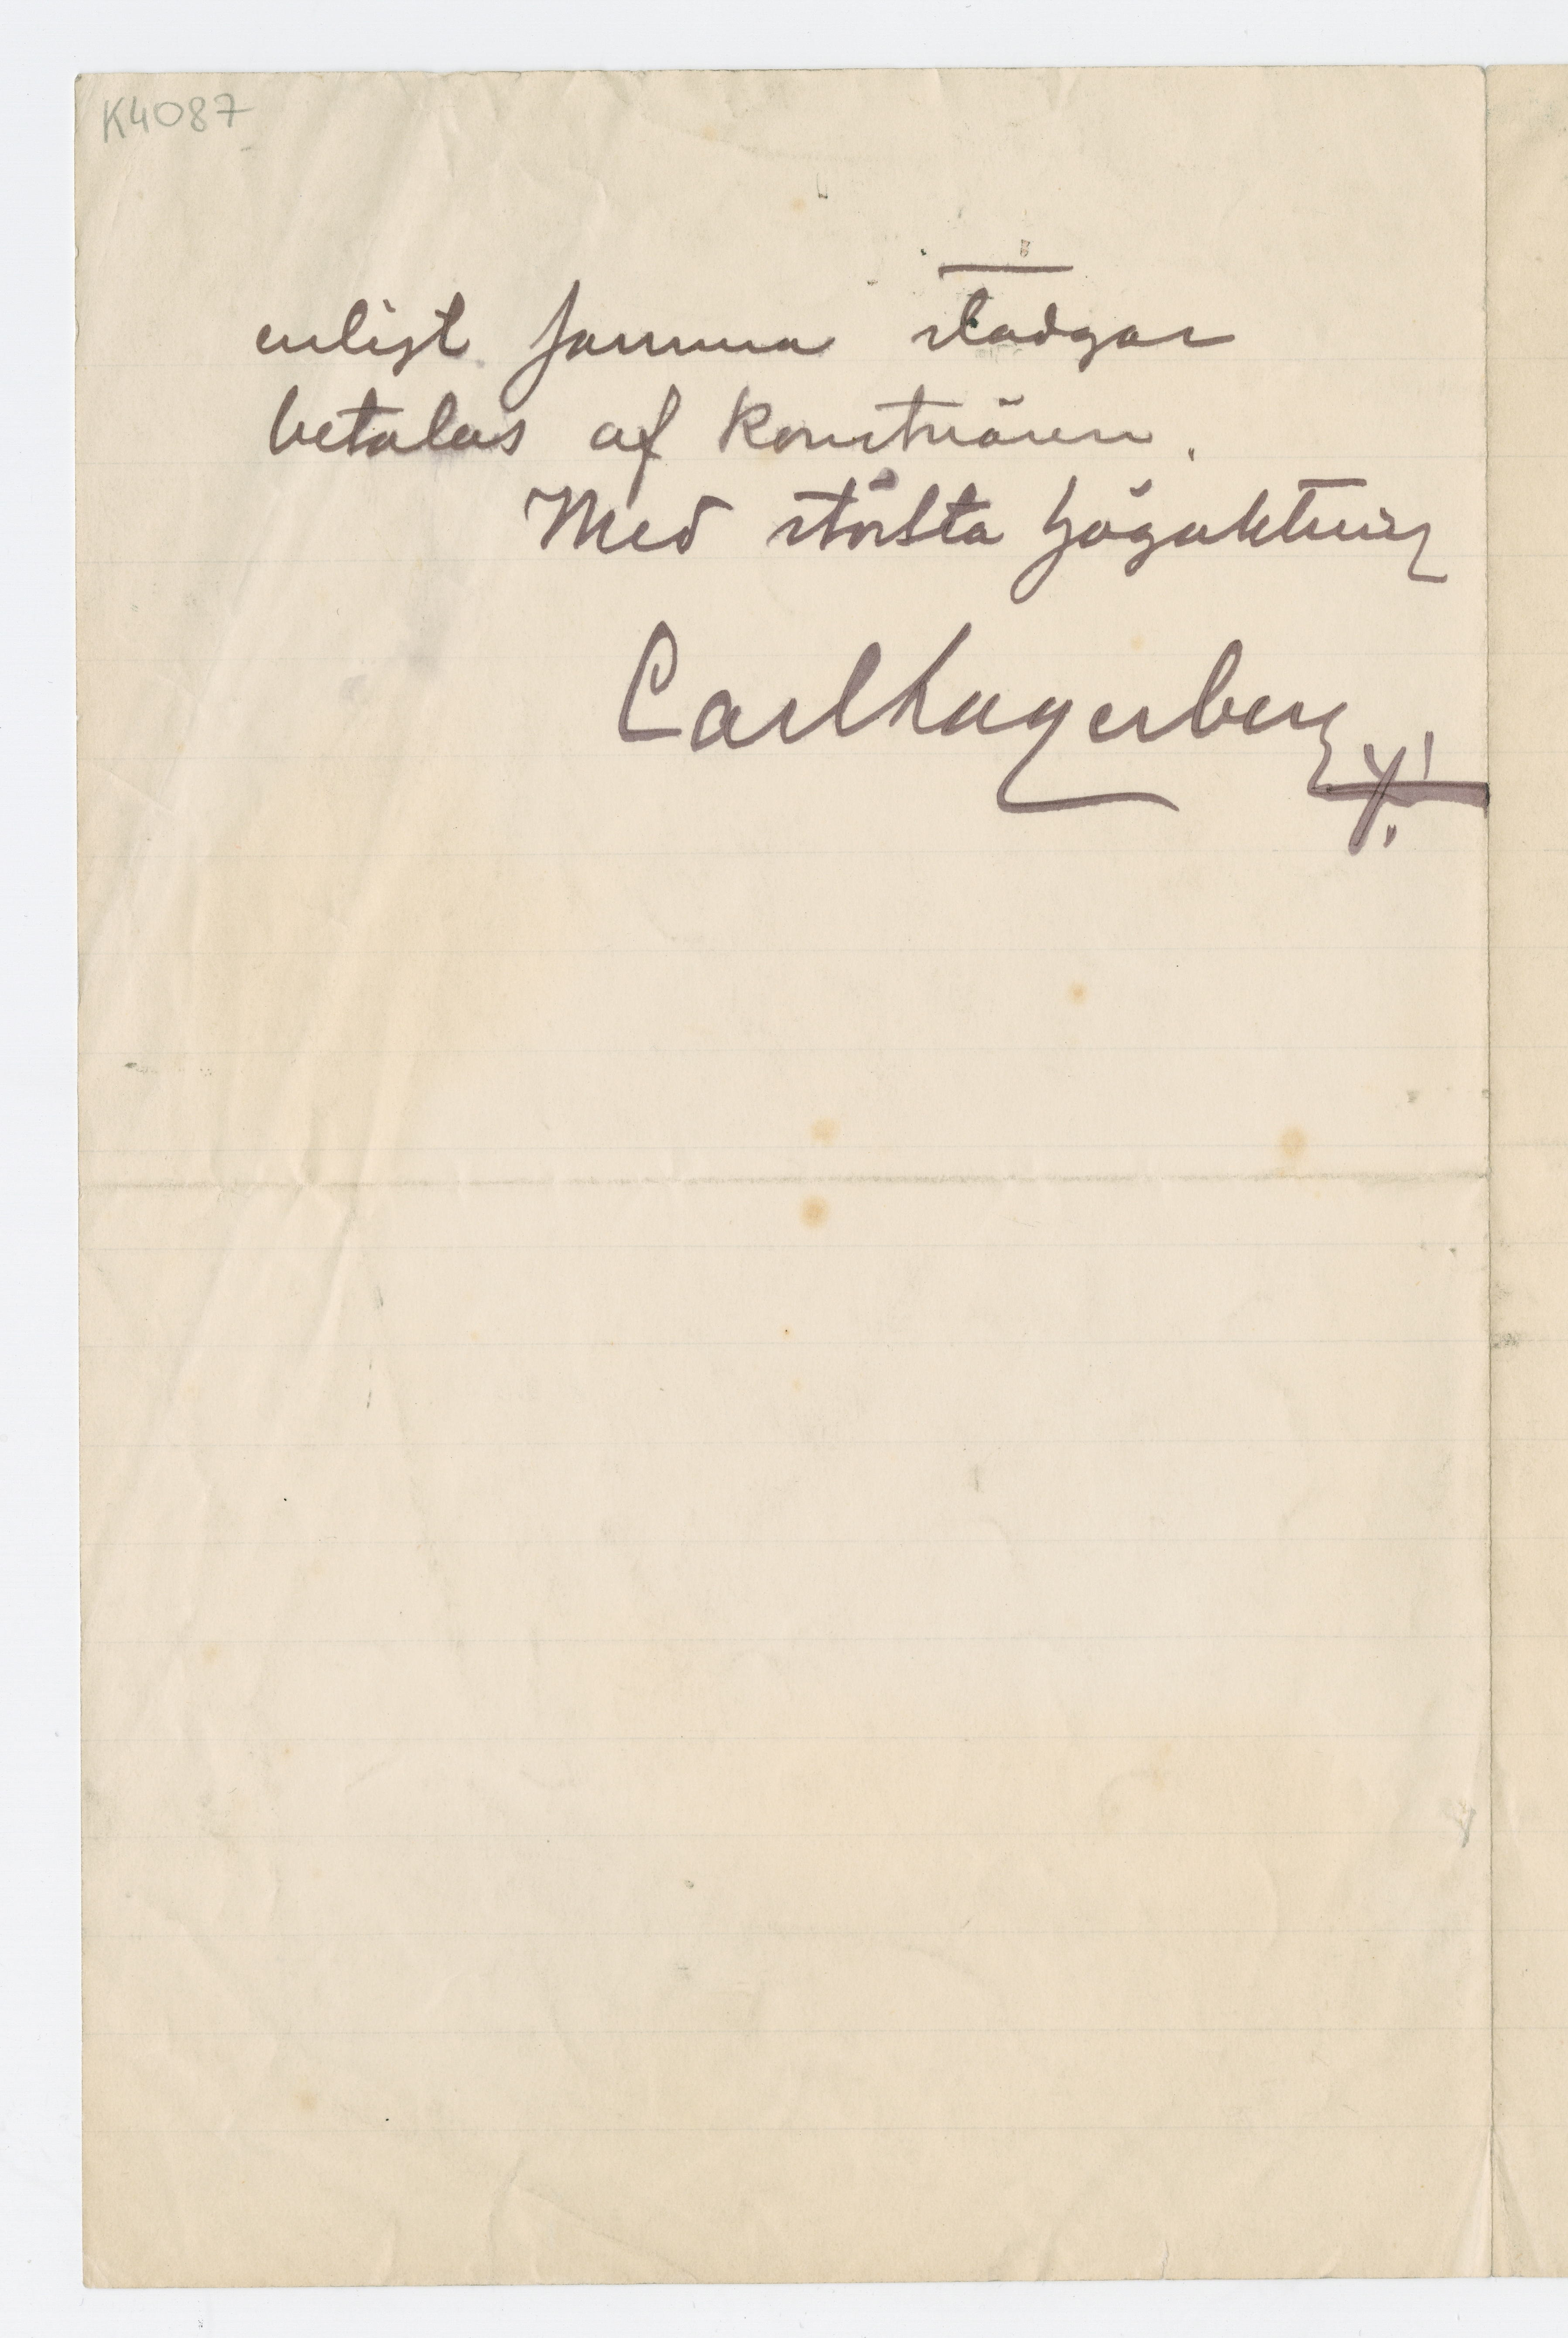 K4087
enligt samma stadgar
betalas af konstnären.
Med största högaktning
Carl Lagerberg